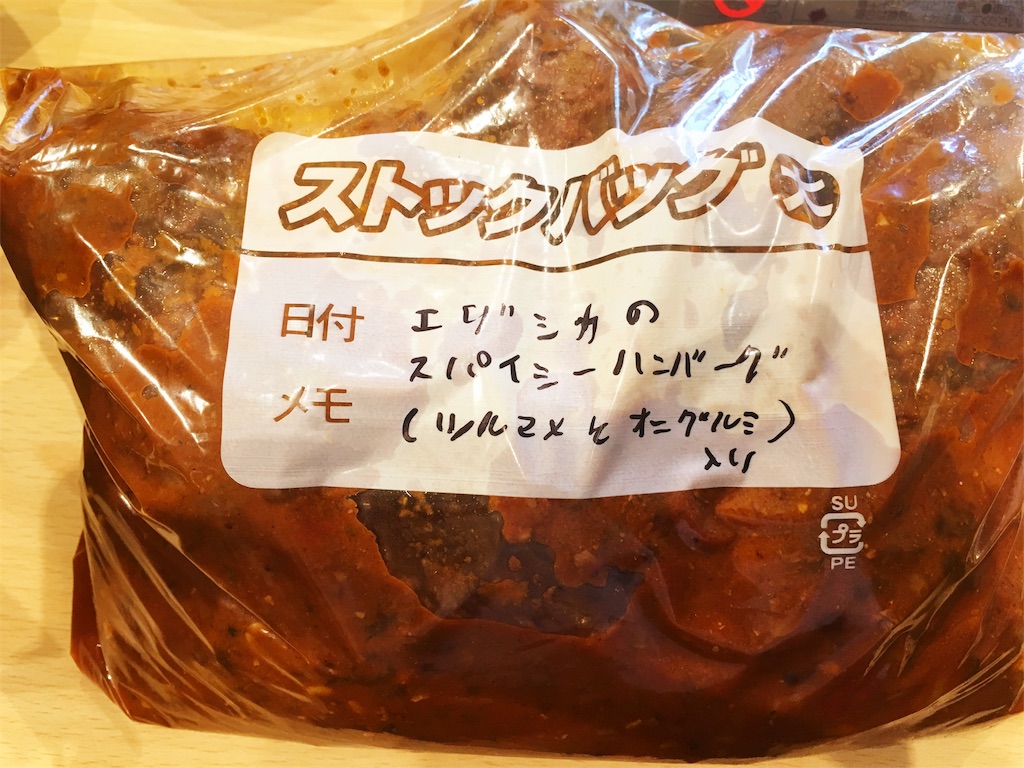 ストックバッグ 大
日付
エゾシカの
スパイシーハンバーグ
メモ
(ツルマメとオニグルミ)
入り
SU
プラ
PE